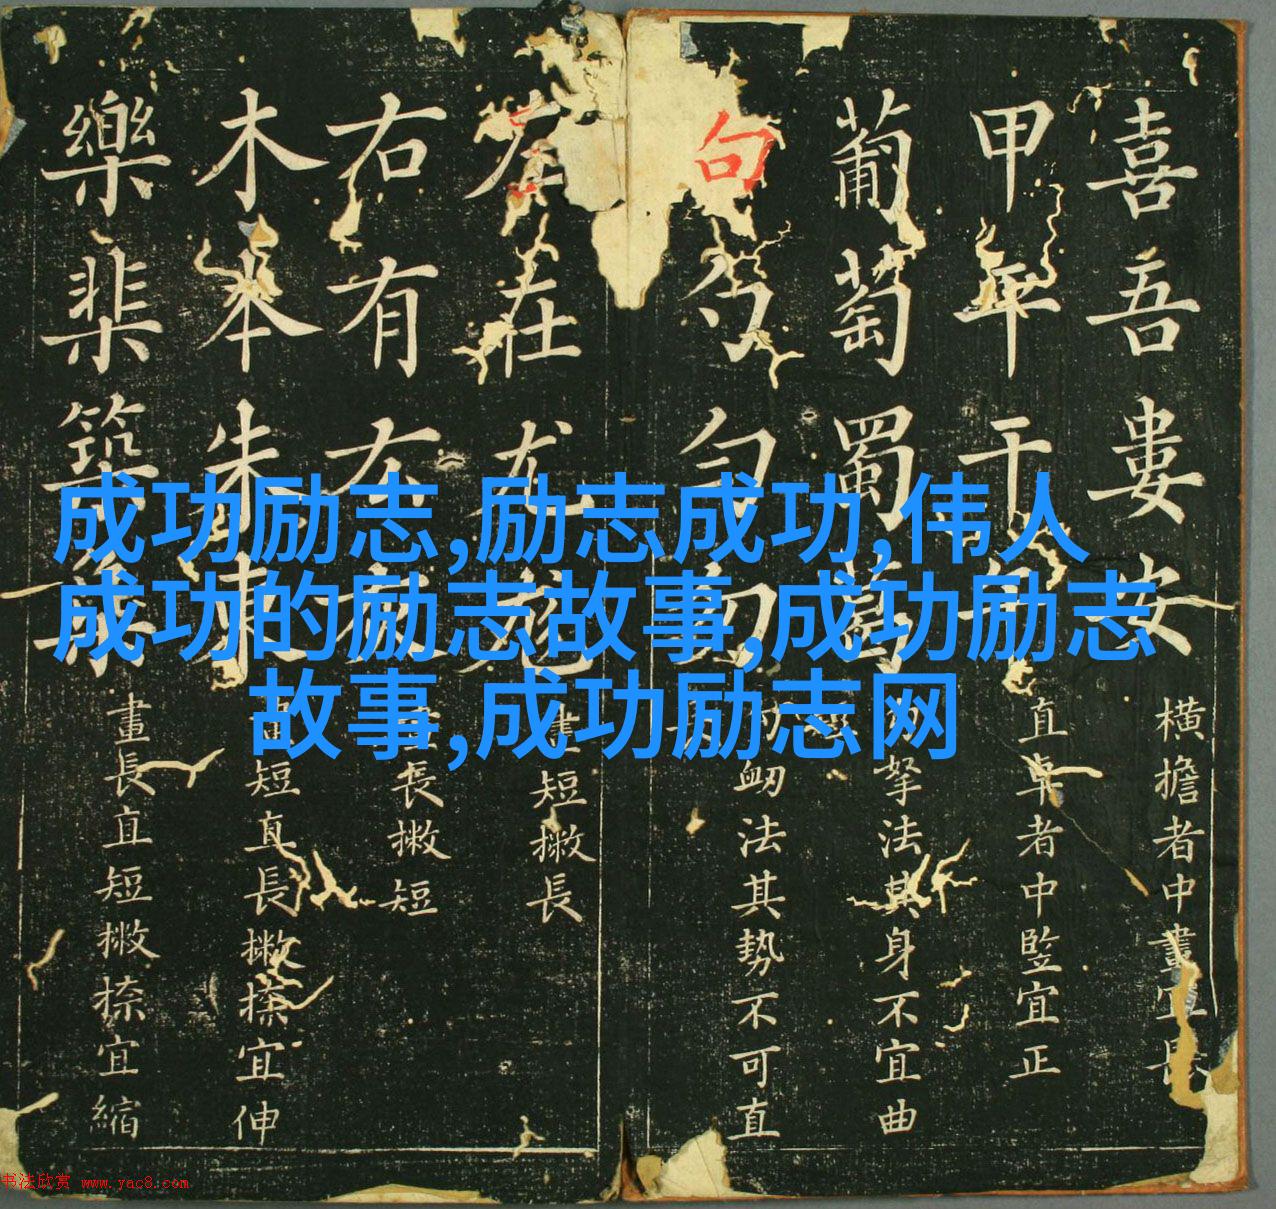 喜吾婁安
横擔者中畫宜
甲平干
直卓者中竪宜正
葡萄蜀葛
拏法其身不宜曲
句勺匀勿
法其勢不可直
左在尤
畫短撇長
右有
長撇短
木本朱
短直長撇捺宜伸
樂
畫長直短撇捺宜縮
成功励志,励志成功,伟人
成功的励志故事,成功励志
故事,成功励志网
书法欣赏 www.yac8.com